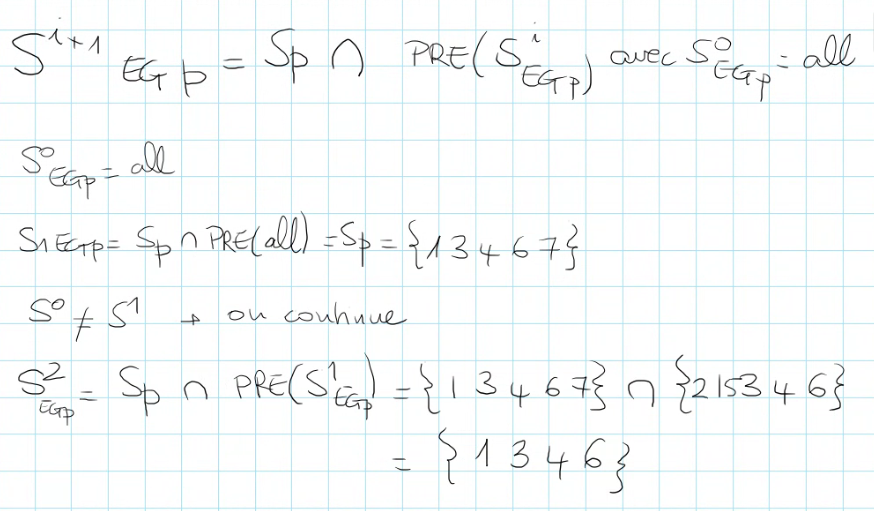 S^{i+1}_{EG p} = Sp ∩ PRE(S^i_{EGp}) avec S^0_{EGp} = all
S^0_{EGp} = all
S1 EGp = Sp ∩ PRE(all) = Sp = {1 3 4 6 7}
S^0 ≠ S^1 → on continue
S^2_{EGp} = Sp ∩ PRE(S^1_{EGp}) = {1 3 4 6 7} ∩ {2 1 5 3 4 6}
= {1 3 4 6}